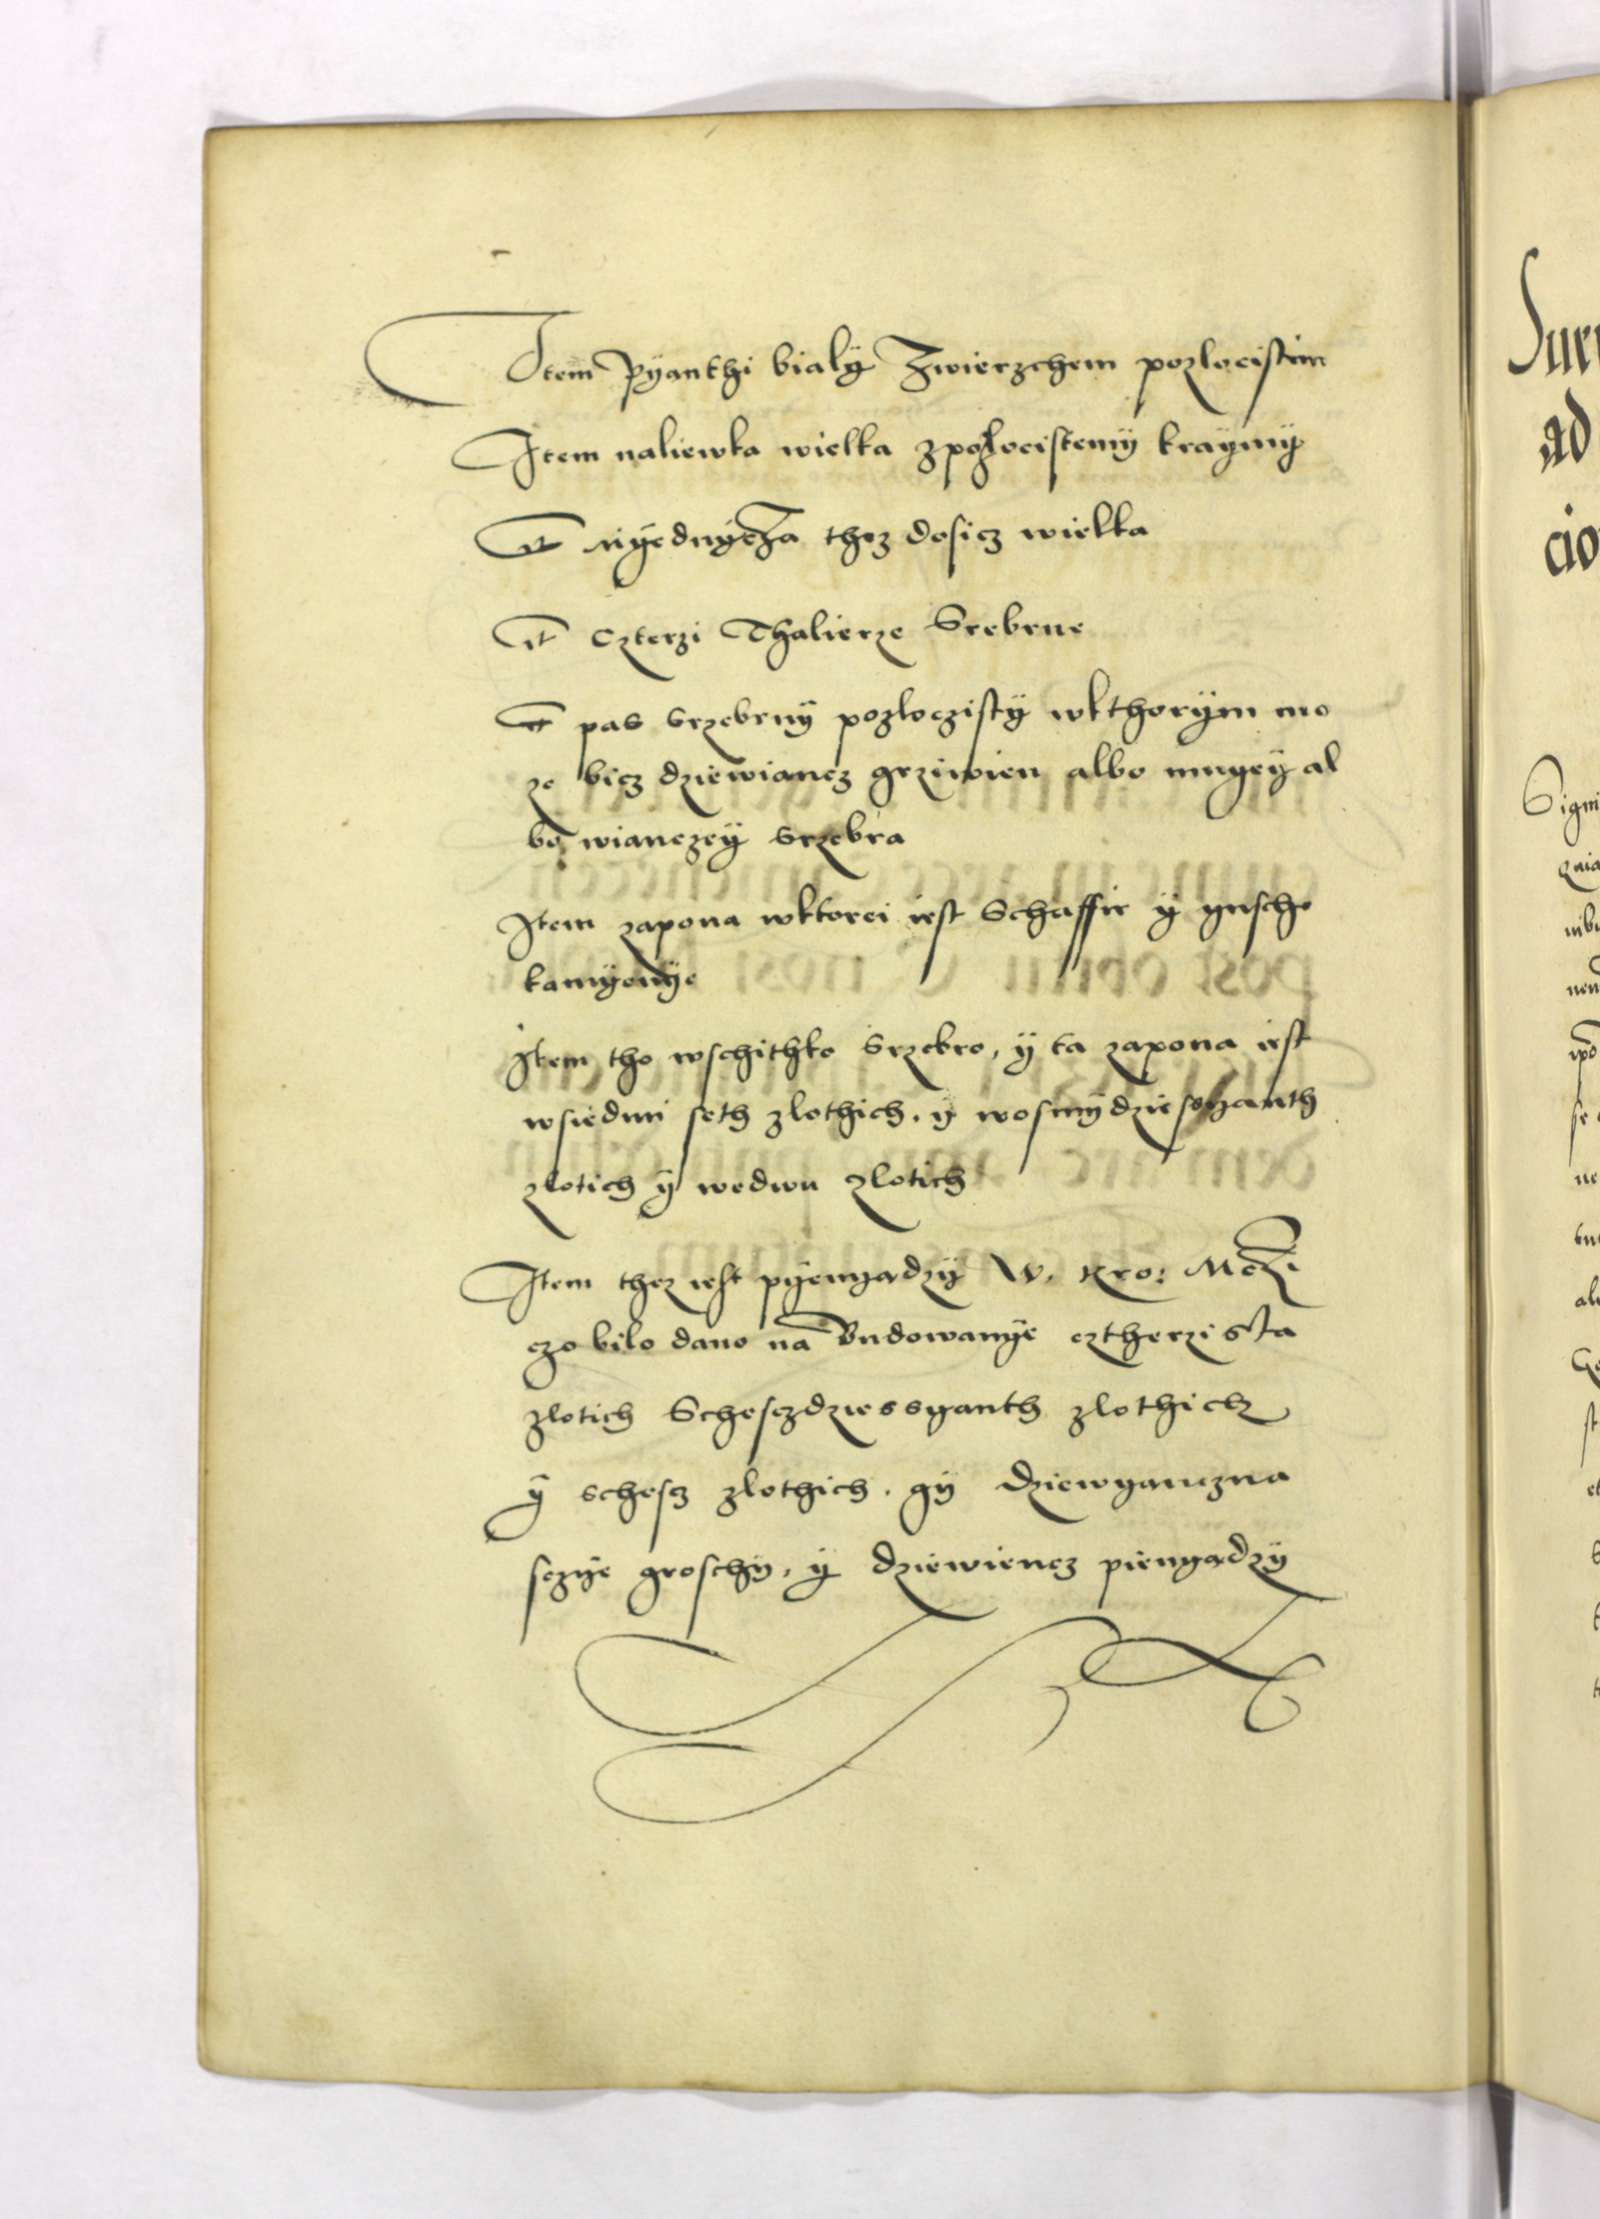 Item Pyanthi bialÿ Zwierzchem pozlocistim
Item naliewka wielka zpozlocistemÿ kraÿmÿ
It Mÿednÿcza thez dosicz wielka
It Czterzi Thalierze Srebrne
It pas srzebrnÿ pozloczistÿ wkthorÿm mo
ze bicz dziewiancz grziwien albo mnyeÿ al
bo wianczeÿ srzebra
Item zapona wktorei iest Schaffir ÿ ynsche
kamÿenÿe
Item tho wschithko srzebro, ÿ ta zapona iest
wsiedmi seth zlothich, ÿ wosmÿdziesyanth
zlotich ÿ wedwu zlotich
Item thez iest pÿenyadzÿ W. Kro: Mczi
czo bilo dano na Budowanÿe cztherzista
zlotich Schesczdziessyanth zlothich
ÿ schescz zlothich. yÿ dziewyanczna
sczÿe groschÿ, ÿ dziewiencz pienyadzÿ
ad
cio
Signi